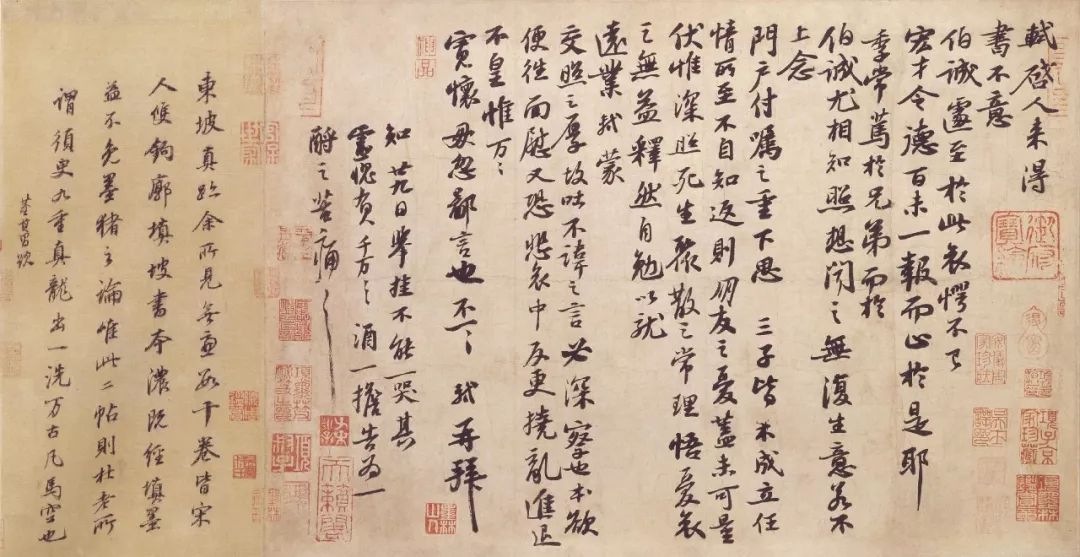 軾啓人來得
書不意
伯誠遽至於此哀愕不已
宏才令德百未一報而止於是耶
季常篤於兄弟而於
伯誠尤相知照想聞之無復生意若不
上念
門户付囑之重下思三子皆未成立任
情所至不自知返則朋友之憂蓋未可量
伏惟深照死生聚散之常理悟憂哀
之無益釋然自勉以就
遠業軾蒙
交照之厚故吐不諱之言必深察也本欲
便往面慰又恐悲哀中反更撓亂進退
不皇惟萬〻
寬懷毋忽鄙言也不一〻軾再拜
知廿九日舉挂不能一哭其
靈愧負千萬〻酒一擔告為一
酹之苦痛〻
東坡真跡余所見無慮數十卷皆宋
人雙鉤廓填坡書本濃既經填墨
益不免墨豬之論惟此二帖則杜老所
謂須臾九重真龍出一洗万古凡馬空也
董其昌題